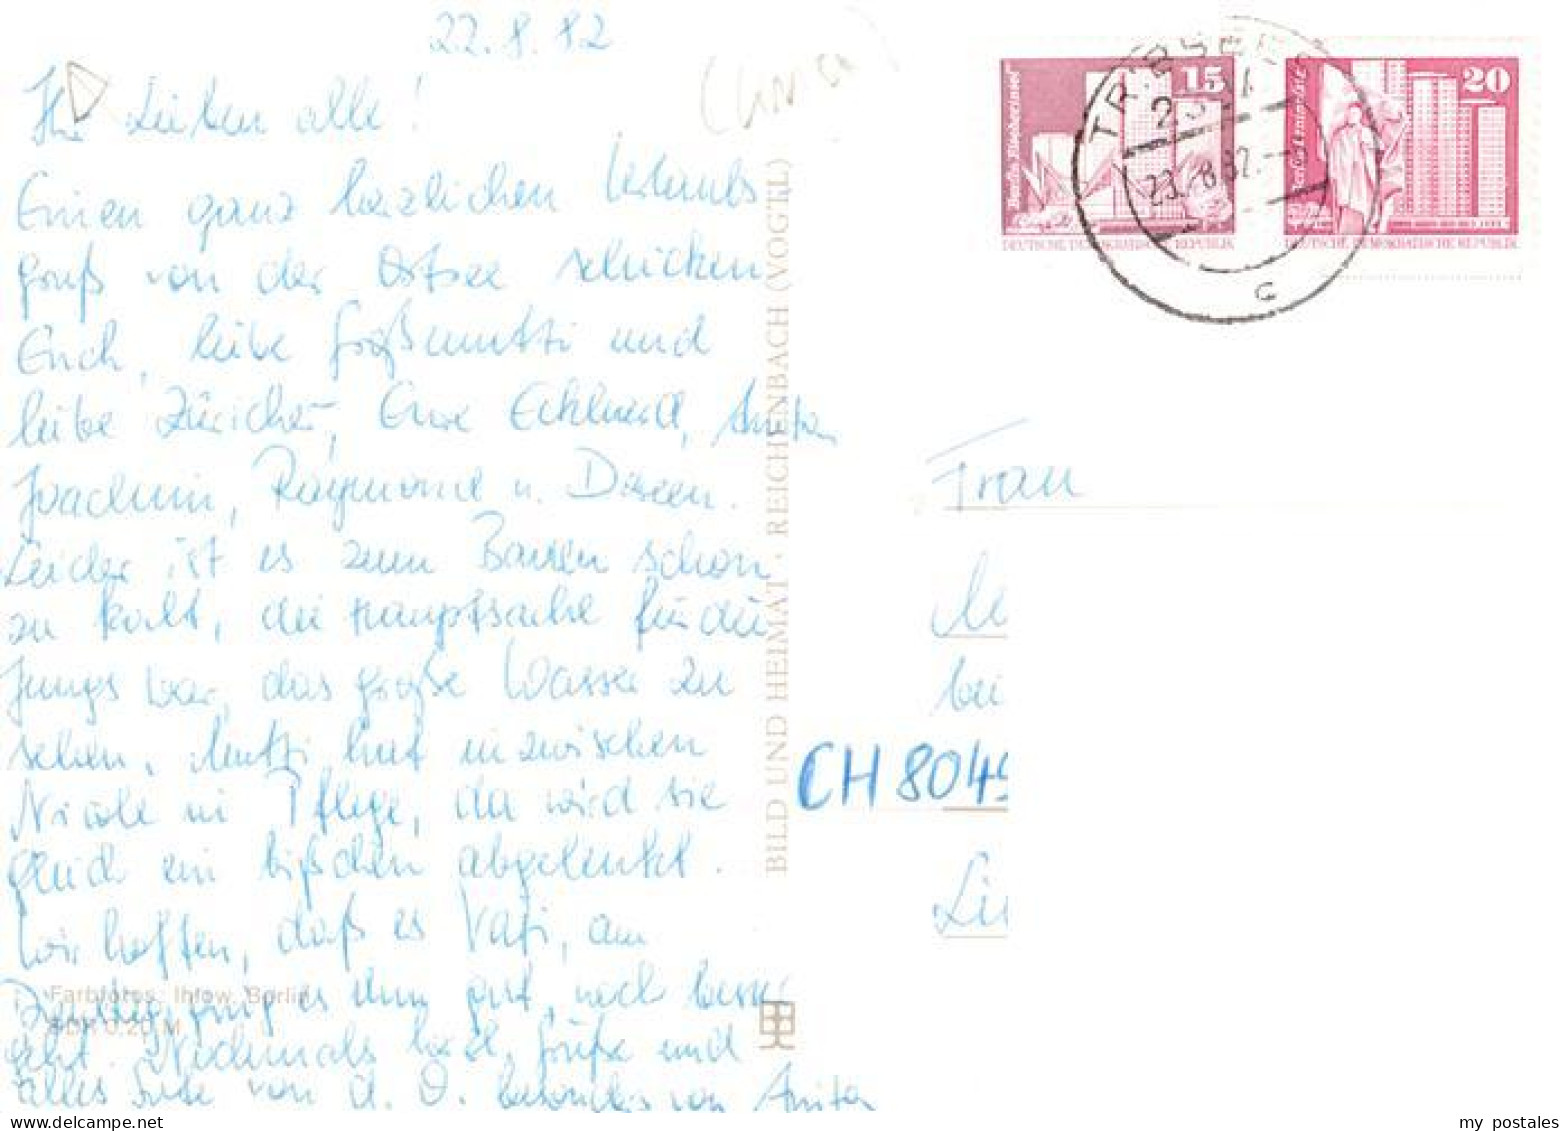 22.8.82
Ihr Lieben alle!
Einen ganz herzlichen Urlaubs
gruß von der Ostsee schicken
Euch, liebe Großmutti und
liebe Züricher, Eure Eckhard, Anita
Joachim, Raymond u.
Leider ist es zum Baden schon
zu kalt, die Hauptsache für die
Jungs war, das große Wasser zu
sehen. Mutti hat inzwischen
Nicole in Pflege, da wird sie
gleich ein bißchen abgelenkt.
Wir hoffen, daß es Vati, am
ging es ihm gut, noch besser
geht. Nochmals herzl. Grüße und
alles Gute von u. O. besonders von Anita
Farbfotos: Ihlow, Berlin
0,20 M
BILD UND HEIMAT · REICHENBACH (VOGTL)
15
DEUTSCHE DEMOKRATISCHE REPUBLIK
20
Berlin, Leninplatz
DEUTSCHE DEMOKRATISCHE REPUBLIK
TRIBSEES
23.-8.82.
c
Frau
bei
CH 8049
my postales